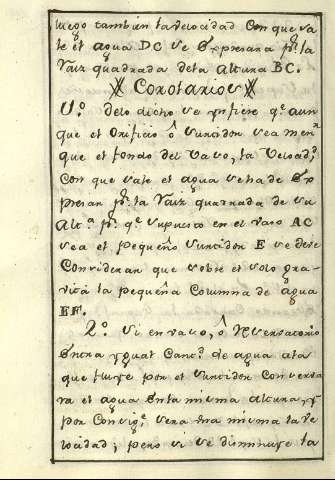 luego tambien la velocidad con que sa
le el agua DC se expresara pr. la
raiz quadrada dela altura BC.
Corolarios
1º. delo dicho se ynfiere qe. aun
que el orificio ô surtidor sea menr.
que el fondo del vaso, la velocidd.
con que sale el agua se ha de ex
presar pr. la raiz quadrada de su
alta. pr. qe. supuesto en el vaso AC
sea el pequeño surtidor E se deve
considerar que sobre el solo gra
vita la pequeña columna de agua
EF.
2º. si en vaso, ô reservatorio
entra ygual cantd. de agua ala
que fluye por el surtidor conserva
ra el agua enla misma altura, y
por consige. sera una misma la ve
locidad; pero si se disminuye la